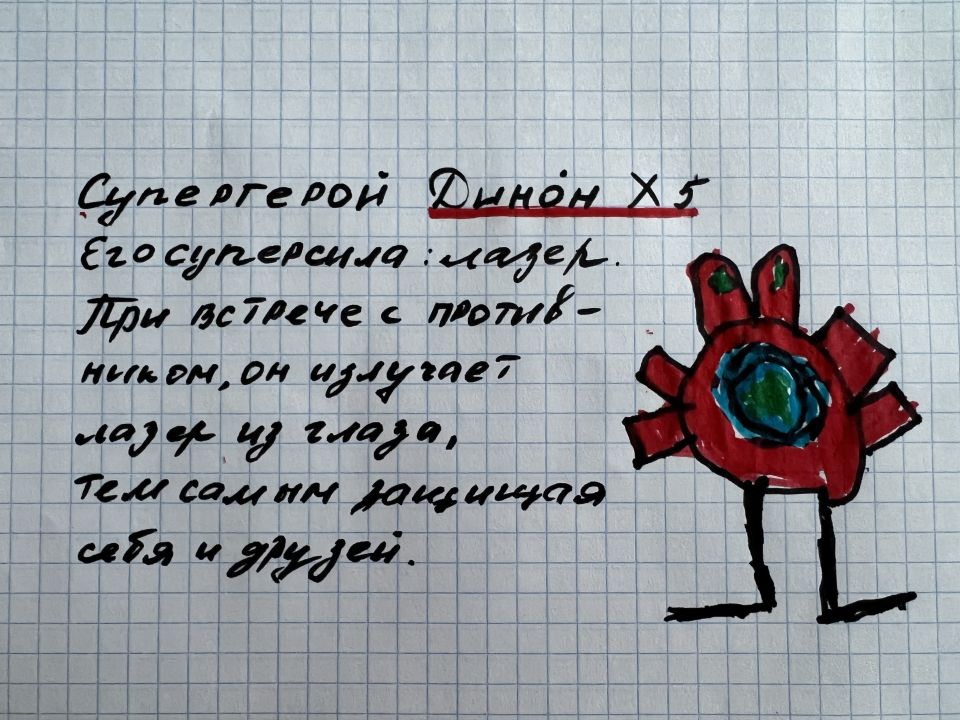 Супергерой Дино́н X5
Его суперсила: лазер.
При встрече с против-
ником, он излучает
лазер из глаза,
тем самым защищая
себя и друзей.